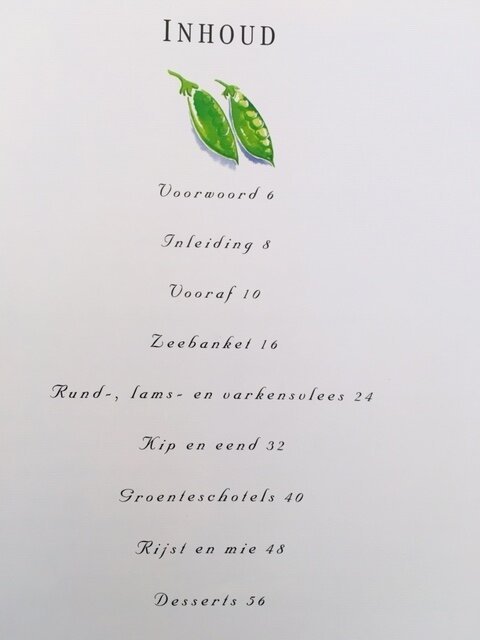 INHOUD
Voorwoord 6
Inleiding 8
Vooraf 10
Zeebanket 16
Rund-, lams- en varkensvlees 24
Kip en eend 32
Groenteschotels 40
Rijst en mie 48
Desserts 56